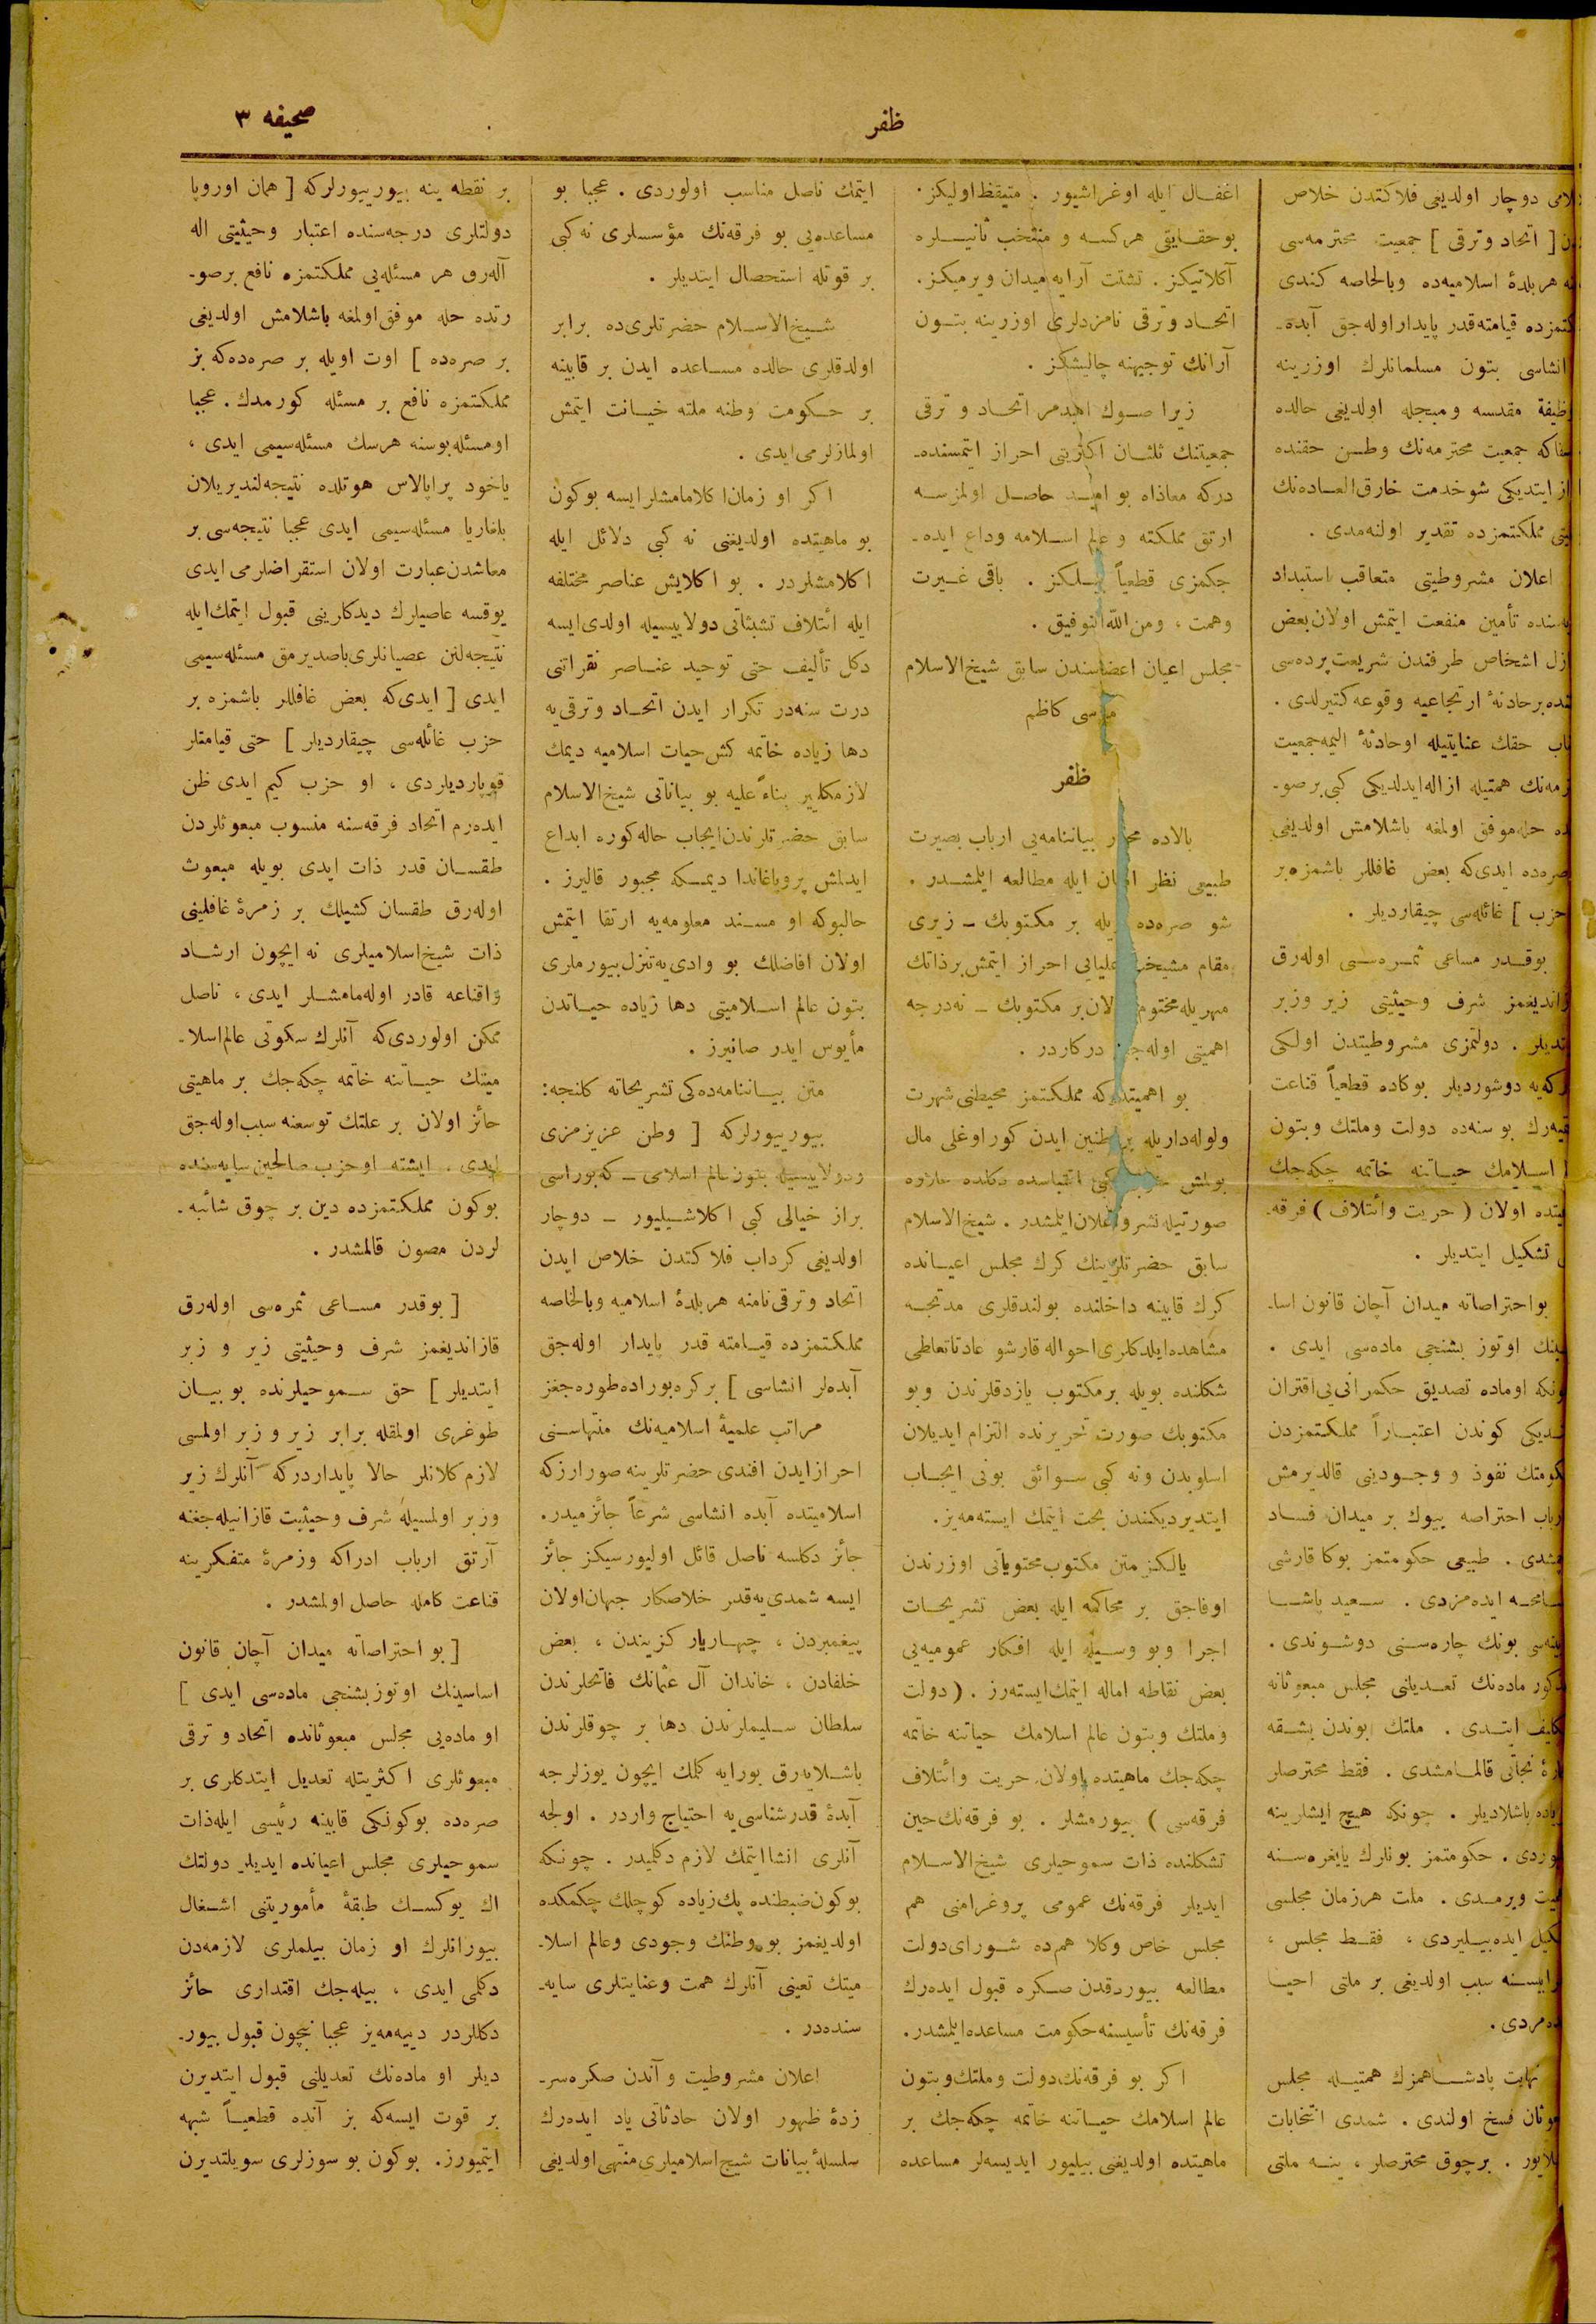 صحیفه ٣
ظفر
لامی دوچار اولدیغی فلاکتدن خلاص
[ اتحاد وترقی ] جمعیت محترمه‌سی
هر بلدۀ اسلامیه‌ده وبالخاصه کندی
قیامته قدر پایدار اوله‌جق آبده‌ـ
انشاسی بتون مسلمانلرك اوزرینه
مقدسه ومبجله اولدیغی حالده
جمعیت محترمه‌نك وطـن حقنده
ایتدیکی شو خدمت خارق‌العـاده‌نك
مملکتمزده تقدیر اولنه‌مدی .
اعلان مشروطیتی متعاقب استبداد
تأمین منفعت ایتمش اولان بعض
اشخاص طرفندن شریعت پرده‌سی
برحادثۀ ارتجاعیه وقوعه کتیرلدی .
حقك عنایتیله اوحادثۀ الیمه جمعیت
همتیله ازاله ایدلدیکی کبی بر صوـ
حله موفق اولمغه باشلامش اولدیغی
صره‌ده ایدی‌که بعض غافللر باشمزه بر
حزب ] غائله‌سی چیقاردیلر .
بوقـدر مساعی ثمـره‌سـی اوله‌رق
شرف وحیثیتی زیر وزبر
دولتمزی مشروطیتدن اولکی
دوشوردیلر بوکاده قطعیاً قناعت
بو سنه‌ده دولت وملتك وبتون
اسـلامك حیـاتنه خاتمه چکه‌جك
اولان ( حریت وائتلاف ) فرقه‌ـ
تشکیل ایتدیلر .
بو احتراصاته میدان آچان قانون اساـ
اوتوز بشنجی ماده‌سی ایدی .
اوماده تصدیق حکمرانی‌یی اقتران
کوندن اعتبـاراً مملکتمزدن
نفوذ و وجـودینی قالدیرمش
احتراصه بیوك بر میدان فسـاد
طبیعی حکومتمز بوکا قارشی
ایده‌مزدی . سـعید پاشـا
بونك چاره‌سـنی دوشـوندی .
ماده‌نك تعـدیلنی مجلس مبعوثانه
ایتـدی . ملتك بوندن بشـقه
نجاتی قالمـامشدی . فقط محترصلر
باشلادیلر . چونکه هیچ ایشلرینه
حکومتمز بونلرك یایغره‌سـنه
ویرمـدی . ملت هرزمان مجلسی
ایده‌بیـلیردی ، فقـط مجلس ،
سبب اولدیغی بر ملتی احیـا
نهایت پادشـاهمزك همتیـله مجلس
فسخ اولندی . شمدی انتخابات
برچوق محترصلر ، ینـه ملتی
اغفـال ایله اوغراشیور . متیقظ اولیکز .
بوحقـایقی هرکسـه و منتخب ثانیـلره
آکلاتیکز . تشتت آرایه میدان ویرمیکز .
اتحـاد وترقی نامزدلری اوزرینه بتـون
آرانك توجیهنه چالیشکز .
زیرا صـوك امیدمز اتحـاد و ترقی
جمعیتنك ثلثـان اکثریتی احراز ایتمسنده‌ـ
درکه معاذاه بو امیـد حاصـل اولمزسـه
ارتق مملکته و عالم اسـلامه وداع ایده‌ـ
جکمزی قطعیاً بیـلکز . باقی غـیرت
وهمت ، ومن‌الله‌التوفیق .
مجلس اعیان اعضاسندن سابق شیخ‌الاسلام
موسی کاظم
ظفر
بالاده محرر بیاننامه‌یی ارباب بصیرت
طبیعی نظر امعان ایله مطالعه ایلمشـدر .
شو صره‌ده بویله بر مکتوبك ـ زیری
مقام مشیخت علیایی احراز ایتمش برذاتك
مهریله مختوم اولان بر مکتوبك ـ نه‌درجه
اهمیتی اوله‌جغی درکاردر .
بو اهمیتدرکه مملکتمز محیطنی شهرت
ولوله‌داریله پر طنین ایدن کور اوغلی مال
بولمش
صورتیله نشر واعلان ایلمشدر . شیخ‌الاسلام
سابق حضرتلرینك کرك مجلس اعیـانده
کرك قابینه داخلنده بولندقلری مدتجـه
مشاهده ایلدکلری احواله قارشو عادتا تعاطی
شکلنده بویله بر مکتوب یازدقلرندن وبو
مکتوبك صورت تحریرنده التزام ایدیلان
اسلوبدن ونه کبی سـوائق بونی ایجـاب
ایتدیردیکندن بحث ایتمك ایسته‌مه‌یز .
یالکز متن مکتوب محتویاتی اوزرندن
اوفاجق بر محاکمه ایله بعض تشریحـات
اجرا وبو وسـیله ایله افکار عمومیه‌یی
بعض نقاطه اماله ایتمك ایسته‌رز . ( دولت
وملتك وبتون عالم اسلامك حیاتنه خاتمه
چکه‌جك ماهیتده اولان حریت وائتلاف
فرقه‌سی ) بیورمشلر . بو فرقه‌نك حین
تشکلنده ذات سموحیلری شیخ‌الاسـلام
ایدیلر فرقه‌نك عمومی پروغرامنی هم
مجلس خاص وکلا هم‌ده شـورای دولت
مطالعه بیوردقدن صـکره قبول ایده‌رك
فرقه‌نك تأسیسنه حکومت مساعده ایلمشدر .
اکر بو فرقه‌نك دولت وملتك وبتون
عالم اسلامك حیـاتنه خاتمه چکه‌جك بر
ماهیتده اولدیغنی بیلیور ایدیسه‌لر مساعده
ایتمك ناصل مناسب اولوردی . عجبا بو
مساعده‌یی بو فرقه‌نك مؤسسلری نه کبی
بر قوتله استحصال ایتدیلر .
شـیخ‌الاسـلام حضرتلری‌ده برابر
اولدقلری حالده مسـاعده ایدن بر قابینه
بر حـکومت وطنه ملته خیـانت ایتمش
اولمازلرمی‌ایدی .
اکر او زمان اکلامامشلر ایسه بوکون
بو ماهیتده اولدیغنی نه کبی دلائل ایله
اکلامشلردر . بو اکلایش عناصر مختلفه
ایله ائتلاف تشبثاتی دولایسیله اولدی ایسه
دکل تألیف حتی توحید عنـاصر نقراتنی
درت سنه‌در تکرار ایدن اتحـاد وترقی‌یه
دها زیاده خاتمه کش حیات اسلامیه دیمك
لازمکلیر بناءً علیه بو بیاناتی شیخ‌الاسلام
سابق حضرتلرندن ایجاب حاله کوره ابداع
ایدلمش پروپاغاندا دیمـکه مجبور قالیرز .
حالبوکه او مسـند معلومه‌یه ارتقا ایتمش
اولان افاضلك بو وادی‌یه تنزل بیورملری
بتون عالم اسـلامیتی دها زیاده حیـاتدن
مأیوس ایدر صانیرز .
متن بیـاننامه‌ده‌کی تشریحاته کلنجه :
بیورییورلرکه [ وطن عزیزمزی
ودولایسیله بتون عالم اسلامی ـ که بوراسی
براز خیالی کبی اکلاشـیلیور ـ دوچار
اولدیغی کرداب فلاکتدن خلاص ایدن
اتحاد وترقی نامنه هر بلدۀ اسلامیه وبالخاصه
مملکتمزده قیـامته قدر پایدار اوله‌جق
آبده‌لر انشاسی ] بر کره بوراده طوره‌جغز
مراتب علمیۀ اسلامیه‌نك منتهاسـنی
احراز ایدن افندی حضرتلرینه صورارزکه
اسلامیتده آبده انشاسی شرعاً جائزمیدر .
جائز دکلسه ناصل قائل اولیورسیکز جائز
ایسه شمدی‌یه‌قدر خلاصکار جهان اولان
پیغمبردن ، چهـاریار کزیندن ، بعض
خلفادن ، خاندان آل عثمانك فاتحلرندن
سلطان سـلیملرندن دها بر چوقلرندن
باشـلایه‌رق بورایه کلمك ایچون یوزلرجه
آبدۀ قدرشناسی‌یه احتیاج واردر . اولجه
آنلری انشا ایتمك لازم دکلیدر . چونـکه
بوکون ضبطنده پك زیاده کوچلك چکمکده
اولدیغمز بو وطنك وجودی وعالم اسلاـ
میتك تعینی آنلرك همت وعنایتلری سایه‌ـ
سنده‌در .
اعلان مشروطیت و آندن صکره سرـ
زدۀ ظهور اولان حادثاتی یاد ایده‌رك
سلسلۀ بیانات شیخ‌اسلامیلری منتهی اولدیغی
بر نقطه‌یه ینه بیورییورلرکه [ همان اوروپا
دولتلری درجه‌سنده اعتبار وحیثیتی اله
آله‌رق هر مسئله‌یی مملکتمزه نافع بر صوـ
رتده حله موفق اولمغه باشلامش اولدیغی
بر صره‌ده ] اوت اویله بر صره‌ده‌که بز
مملکتمزه نافع بر مسئله کورمدك . عجبا
اومسئله بوسنه هرسك مسئله‌سیمی ایدی ،
یاخود پراپالاس هوتلده نتیجه‌لندیریلان
بلغاریا مسئله‌سیمی ایدی عجبا نتیجه‌سی بر
معاشدن عبارت اولان استقراضلرمی ایدی
یوقسه عاصیلرك دیدکلرینی قبول ایتمك ایله
نتیجه‌لنن عصیانلری باصدیرمق مسئله‌سیمی
ایدی [ ایدی‌که بعض غافللر باشمزه بر
حزب غائله‌سی چیقاردیلر ] حتی قیامتلر
قوپاردیلردی ، او حزب کیم ایدی ظن
ایده‌رم اتحاد فرقه‌سنه منسوب مبعوثلردن
طقسـان قدر ذات ایدی بویله مبعوث
اوله‌رق طقسان کشیلك بر زمرۀ غافلینی
ذات شیخ‌اسلامیلری نه ایچون ارشـاد
واقناعه قادر اوله‌مامشـلر ایدی ، ناصل
ممکن اولوردی‌که آنلرك سکوتی عالم اسلاـ
میتك حیـاتنه خاتمه چکه‌جك بر ماهیتی
حائز اولان بر علتك توسعنه سبب اوله‌جق
ایدی . ایشته اوحزب صالحین سایه‌سنده
بوکون مملکتمزده دین بر چوق شائبه‌ـ
لردن مصون قالمشدر .
[ بوقدر مسـاعی ثمره‌سی اوله‌رق
قازاندیغمز شرف وحیثیتی زیر و زبر
ایتدیلر ] حق سـموحیلرنده بو بیـان
طوغری اولمقله برابر زیر و زبر اولمسی
لازم کلانلر حالا پایداردرکه آنلرك زیر
وزبر اولمسیله شرف وحیثیت قازانیله‌جغنه
آرتق ارباب ادراکه وزمرۀ متفکرینه
قناعت کامله حاصل اولمشدر .
[ بو احتراصاته میدان آچان قانون
اساسینك اوتوز بشنجی ماده‌سی ایدی ]
او ماده‌یی مجلس مبعوثانده اتحاد و ترقی
مبعوثلری اکثریتله تعدیل ایتدکلری بر
صره‌ده بوکونکی قابینه رئیسی ایله ذات
سموحیلری مجلس اعیانده ایدیلر دولتك
اك یوکسـك طبقۀ مأموریتنی اشـغال
بیورانلرك او زمان بیلملری لازمه‌دن
دکلمی ایدی ، بیله‌جك اقتداری حائز
دکللردر دییه‌مه‌یز عجبا نیچون قبول بیورـ
دیلر او ماده‌نك تعدیلنی قبول ایتدیرن
بر قوت ایسه‌که بز آنده قطعیـاً شبهه
ایتمیورز . بوکون بو سوزلری سویلتدیرن